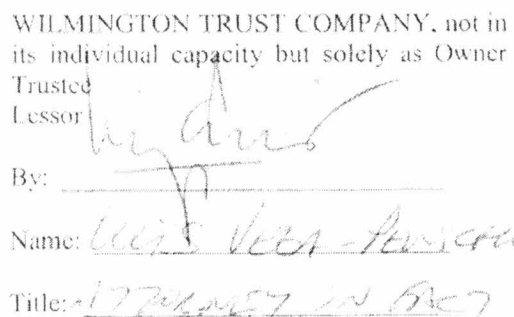 WILMINGTON TRUST COMPANY, not in
its individual capacity but solely as Owner
Trustee
Lessor
By:
Name: LUIS VERA-
Title: ATTORNEY IN FACT